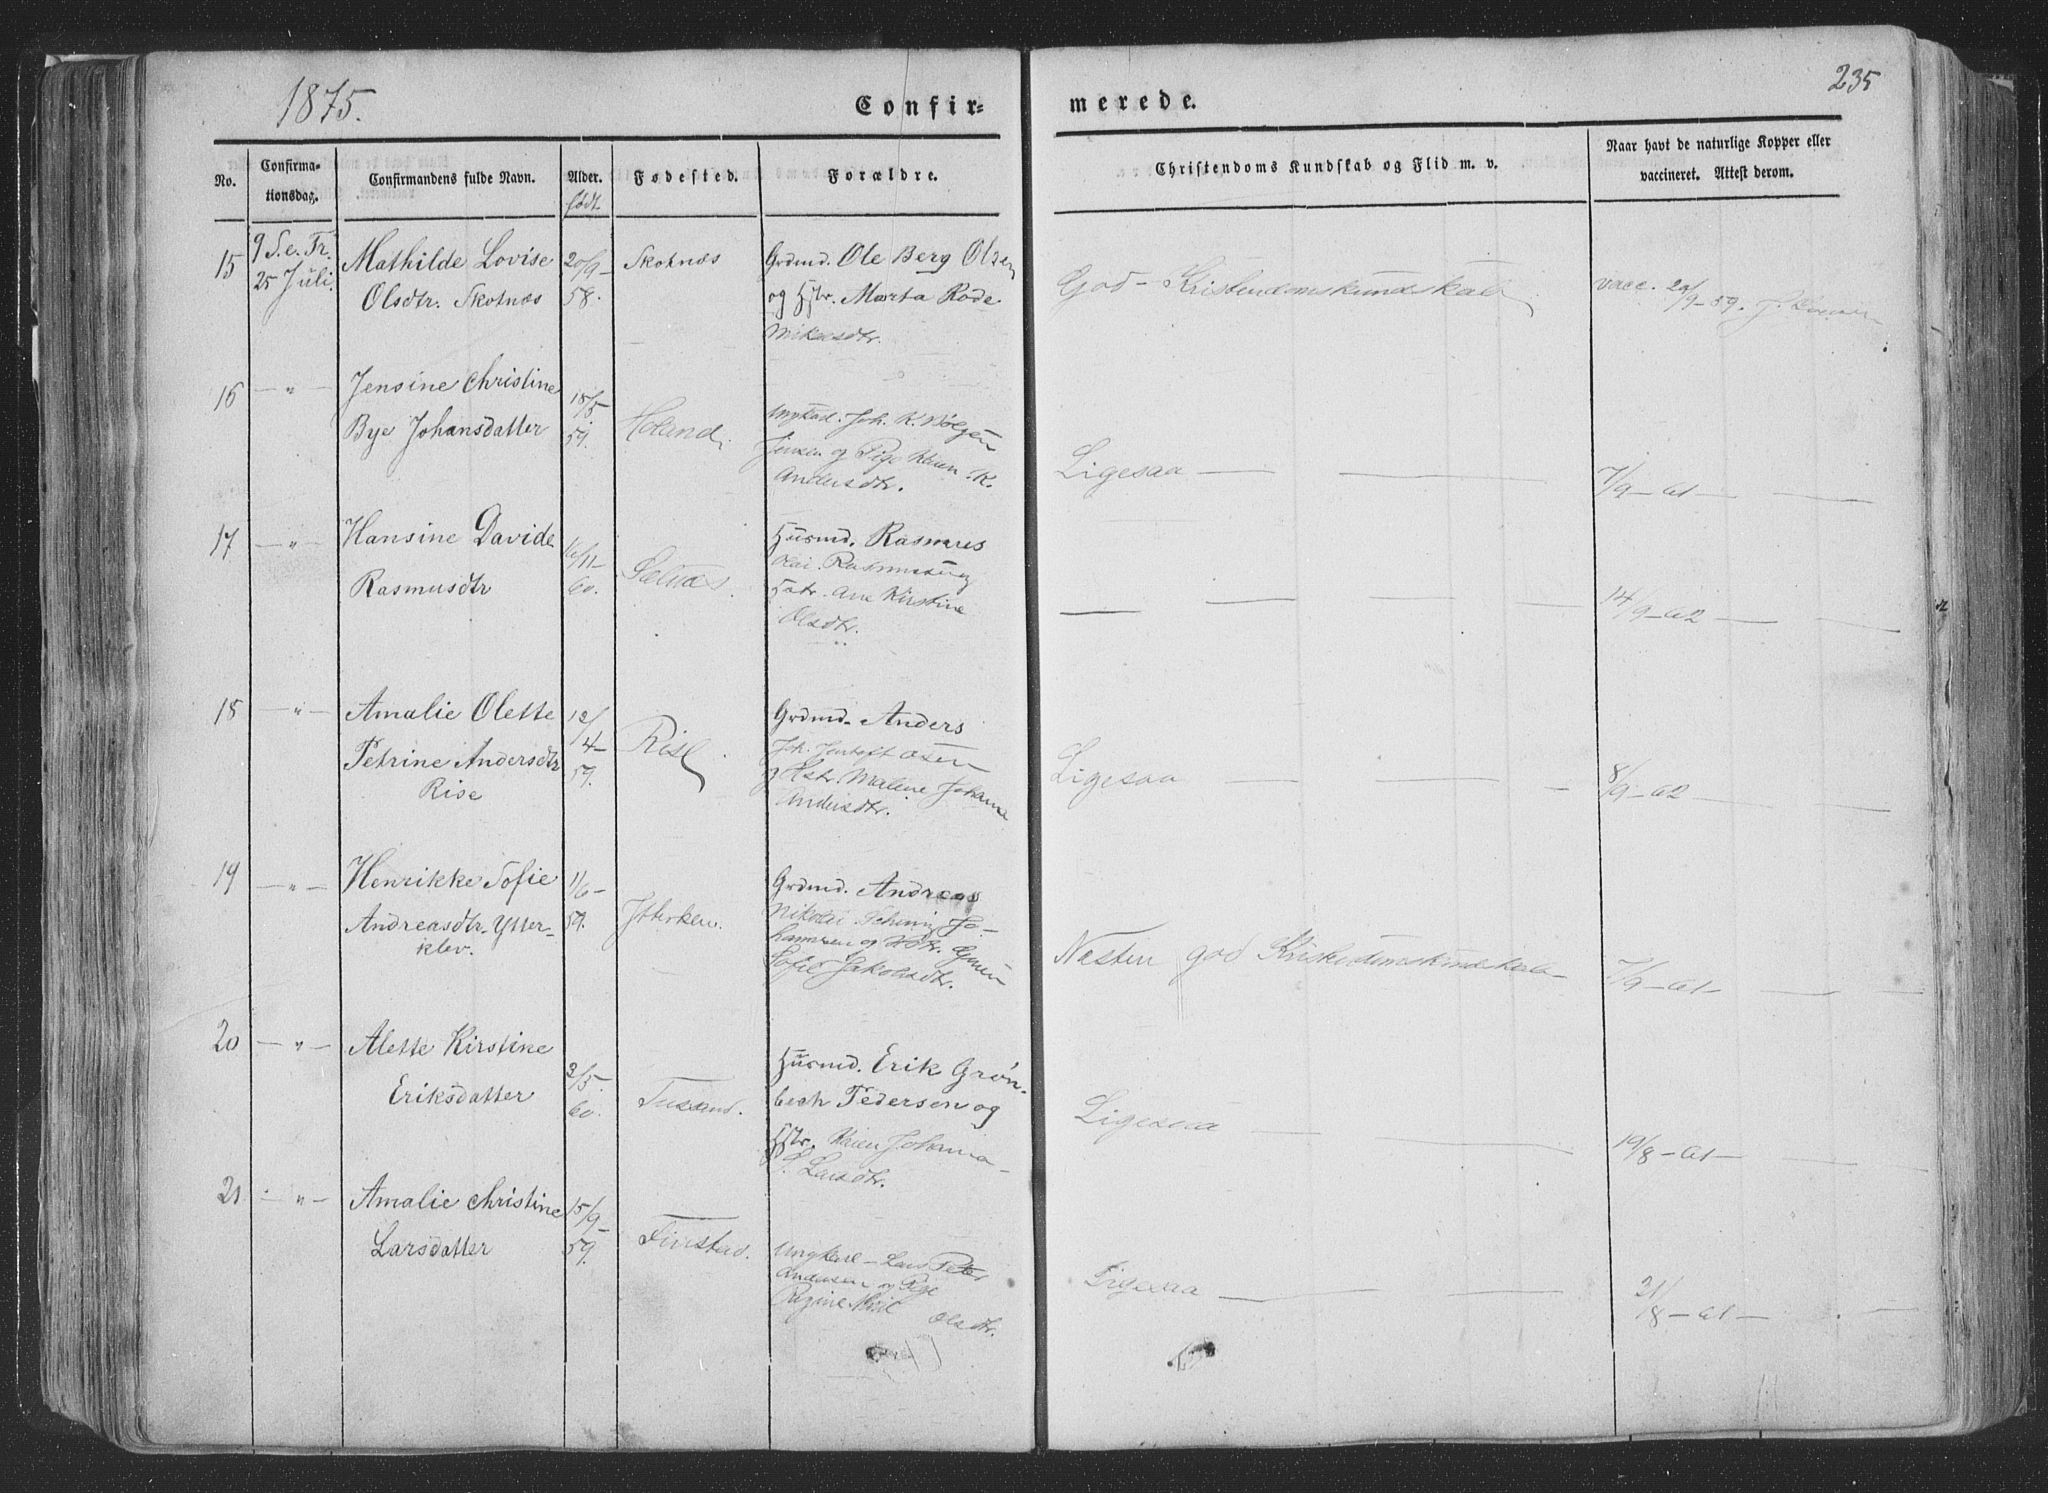 1875.
Confir-
merede.
235
No.
Confirma-
tionsdag.
Confirmandens fulde Navn.
Alder.
født
Fødested.
Forældre.
Christendoms Kundskab og Flid m. v.
Naar havt de naturlige Kopper eller
vaccineret. Attest derom.
15
9 S. e. Tr.
25 Juli.
Mathilde Lovise
Olsdtr. Skotnæs
20/9-
58.
Skotnæs
Grdmd. Ole Berg Olsen
og Hstr. Marta Rode
Nikelsdtr.
God Kristendomskundskab
vacc. 20/9-59.
16
— " —
Jensine Christine
Bye Johansdatter
18/5
59.
Holand.
Ungkarl. Joh. K. Bølgen
Jensen og Pige Karen K.
Andersdtr.
Ligesaa — —
7/9-61 — —
17
— " —
Hansine Davide
Rasmusdtr
16/11-
60.
Husmd. Rasmus
Rasmussen og
Hstr. Ane Kirstine
Olsdtr.
— — — —
14/9-62 — —
18
— " —
Amalie Olette
Petrine Andersdtr
Rise
12/4-
59.
Rise
Grdmd. Anders
Joh. Jentoft Olsen
og Hstr. Malene Johanna
Andersdtr.
Ligesaa — — —
8/9-62 — —
19
— " —
Henrikke Sofie
Andreasdtr. Ytter-
klev.
1/6-
59.
Grdmd. Andreas
Nikolai Jo-
hannesen og Hstr.
Sofie Jakobsdtr.
Næsten god Kristendomskundskab
7/9-61 — —
20
— " —
Alette Kirstine
Eriksdatter
2/5.
60.
Husmd. Erik Grøn-
bech Pedersen og
Hstr. Karen Johanna
Larsdtr.
Ligesaa — —
19/8-61 — —
21
— " —
Amalie Christine
Larsdatter
15/9-
59.
Finstad.
Ungkarl Lars Peter
Andersen og Pige
Regine
Olsdtr.
Ligesaa — — —
21/8-61 — —